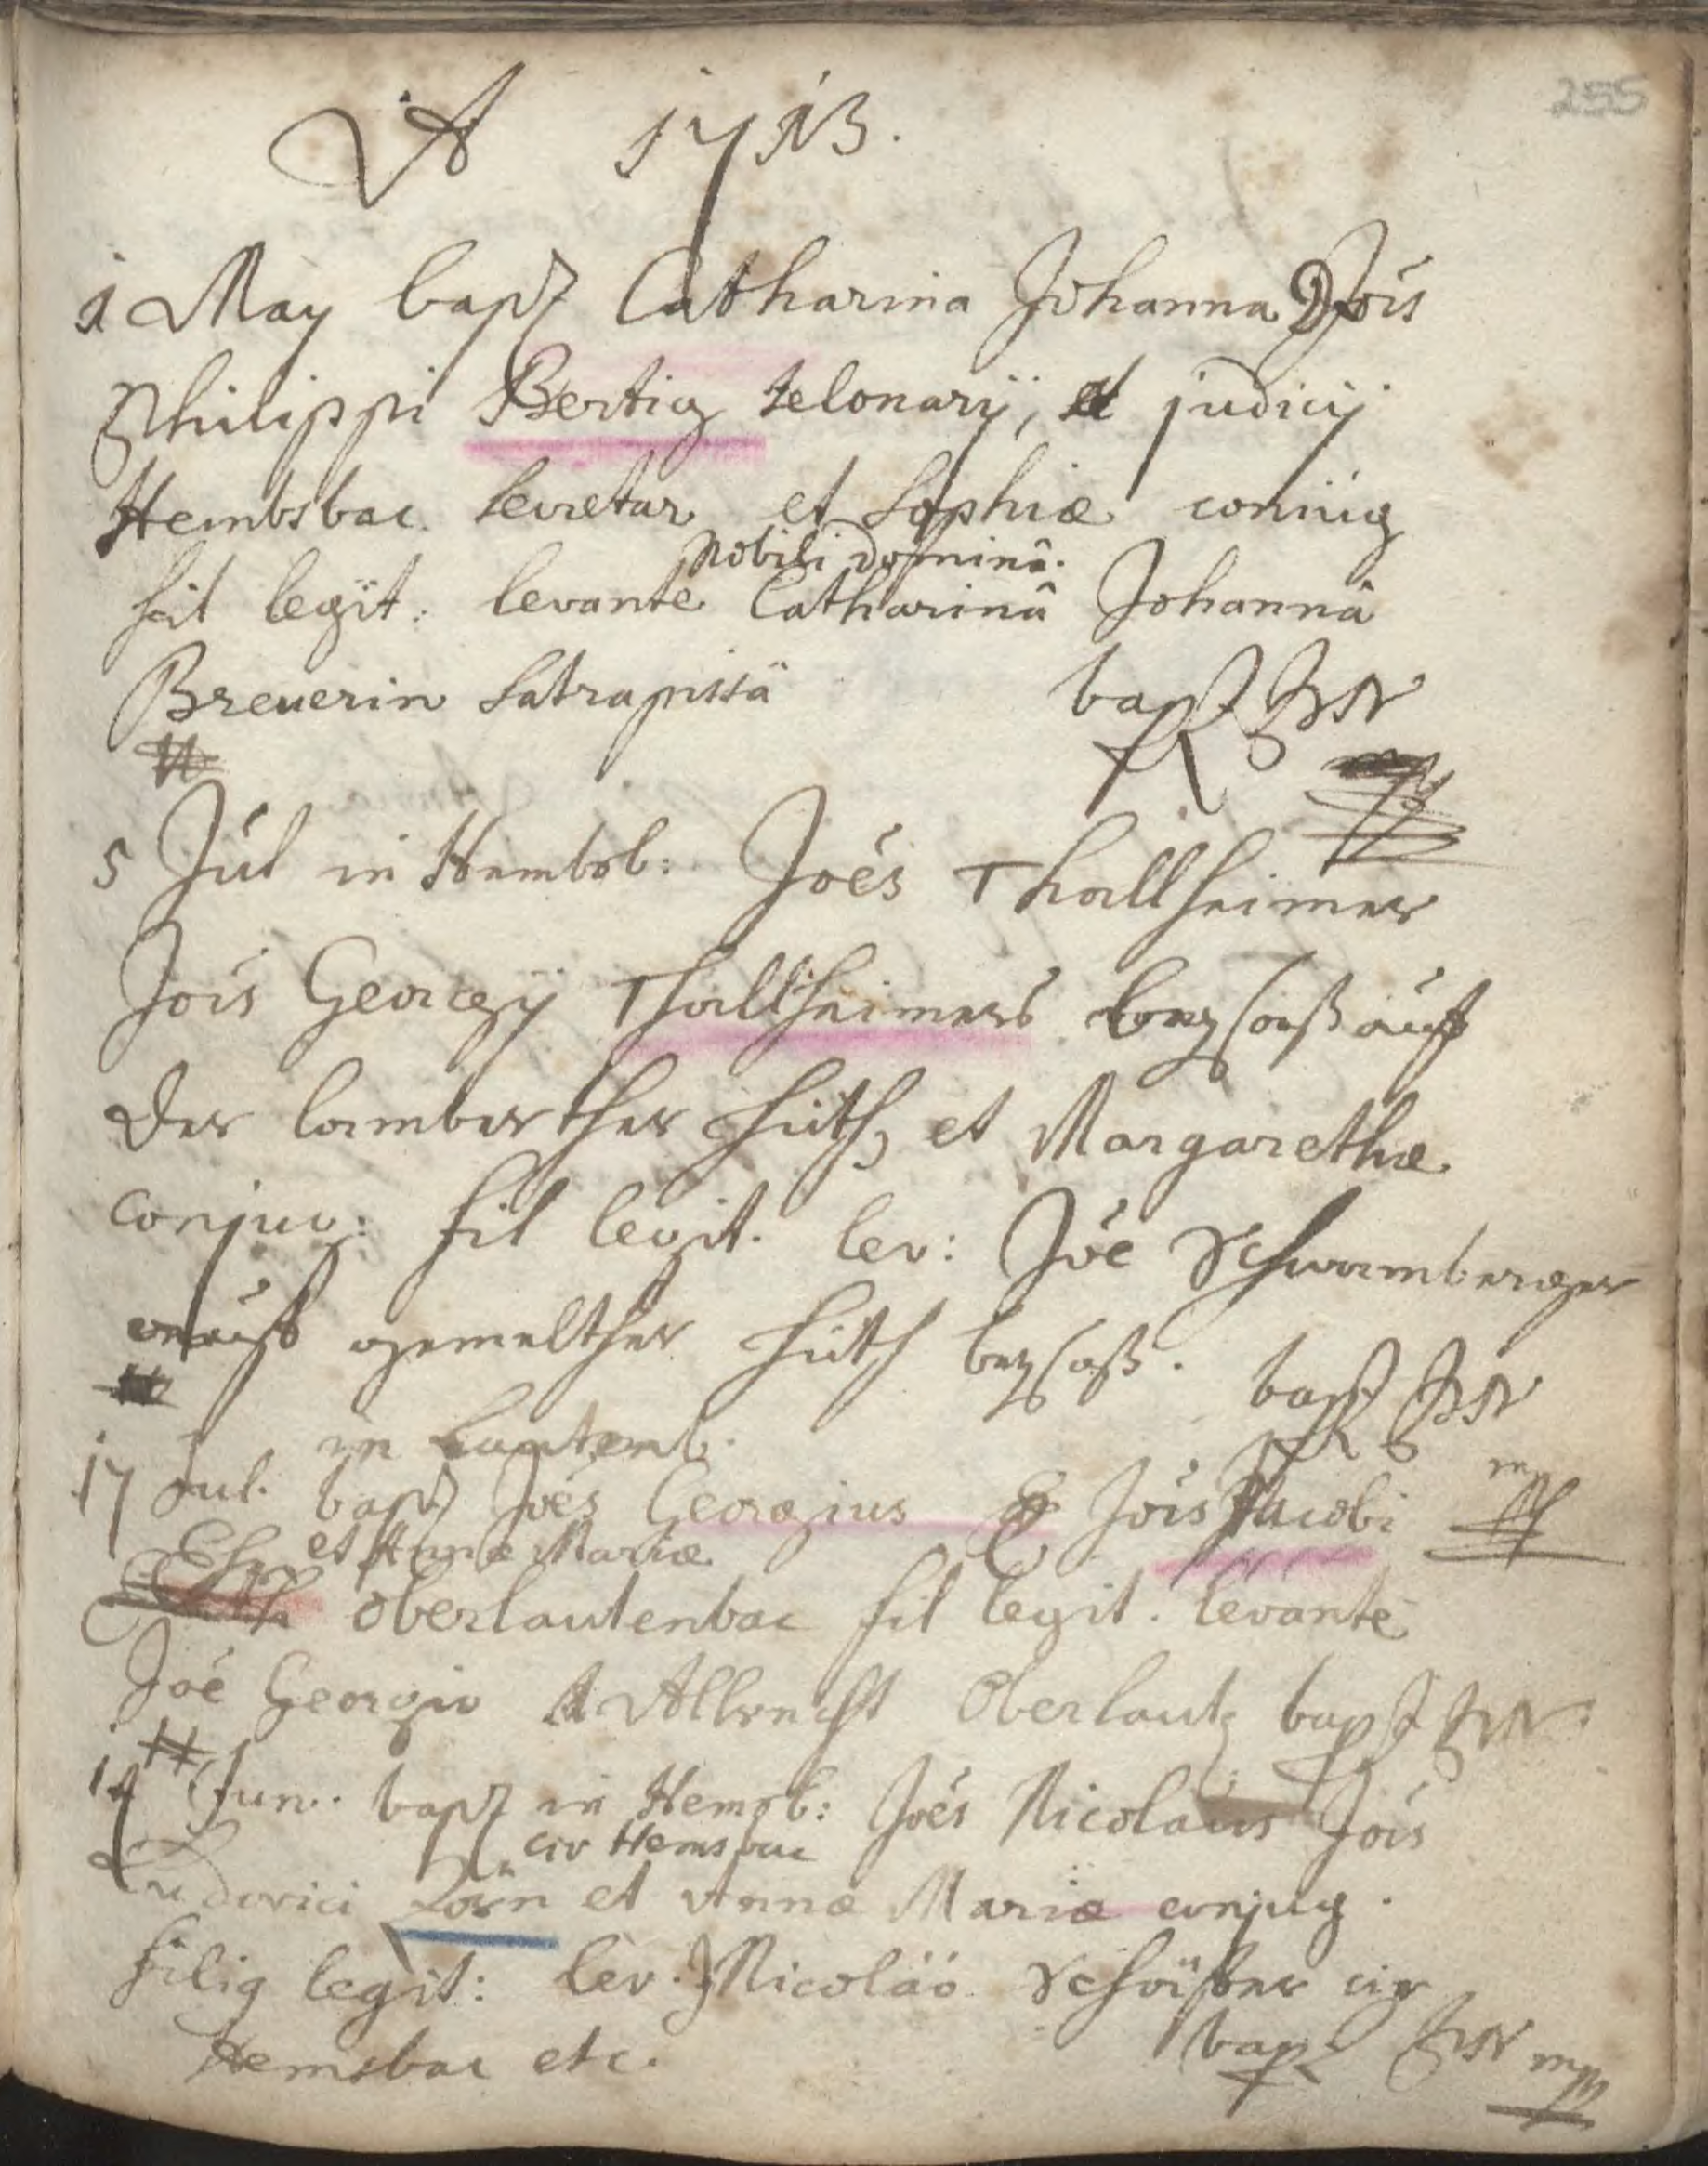 255
A 1713.
1 May bapt Catharina Johanna D Jois
Philippi Bertig telonarij, et judicij
Hembsbac. secretar et Sophiæ coniug
fil legit: levante Nobili Dominâ. Catharinâ Johannâ
Breuerin Satrapissâ bapt
5 Jul in Hembsb: Joés Thallheimer
Jois Georgij Thallheimers beysaß auff
der lamberther Hüth, et Margarethæ
conjug: fil legit. lev: Joé Schwamberger
auff gemelther Hüth beysaß. bapt
in Lautenb.
17 Jul. bapt Joés Georgius Jois Jacobi
et Annæ Mariæ
Oberlautenbac fil legit. levante
Joé Georgio Albrecht Oberlaut bapt
14 Jun. bapt in Hemsb: Joés Nicolaus Jois
civ Hemsbac
Ludovici Zorn et Annæ Mariæ conjug.
filig legit: lev. J Nicoláo Schäffer civ
Hemsbac etc. bapt mp